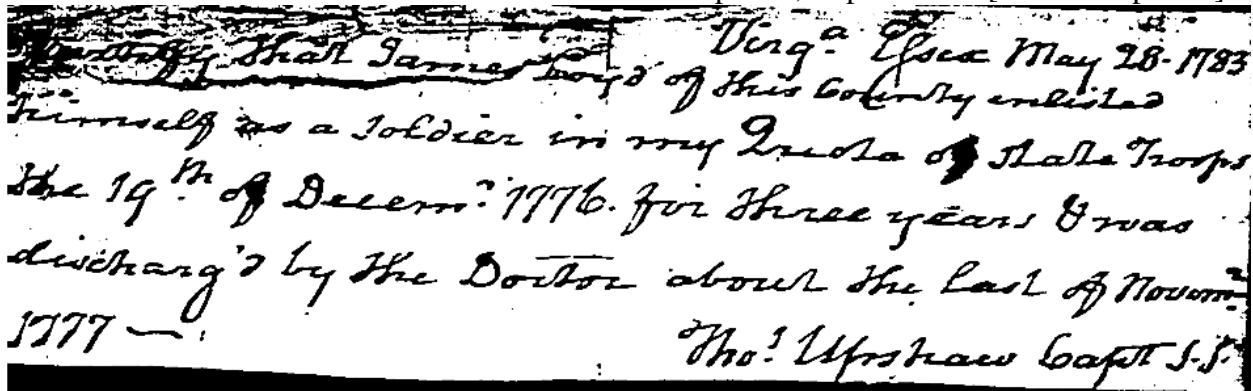 Virg.ᵃ Essex May 28. 1783
I certify that James Boyd of this County enlisted
himself as a Soldier in my Quota of State Troops
the 19.th of Decem.r 1776. for three years & was
discharg'd by the Doctor about the last of Novem.r
1777 —
Tho.s Upshaw Capt S.S.